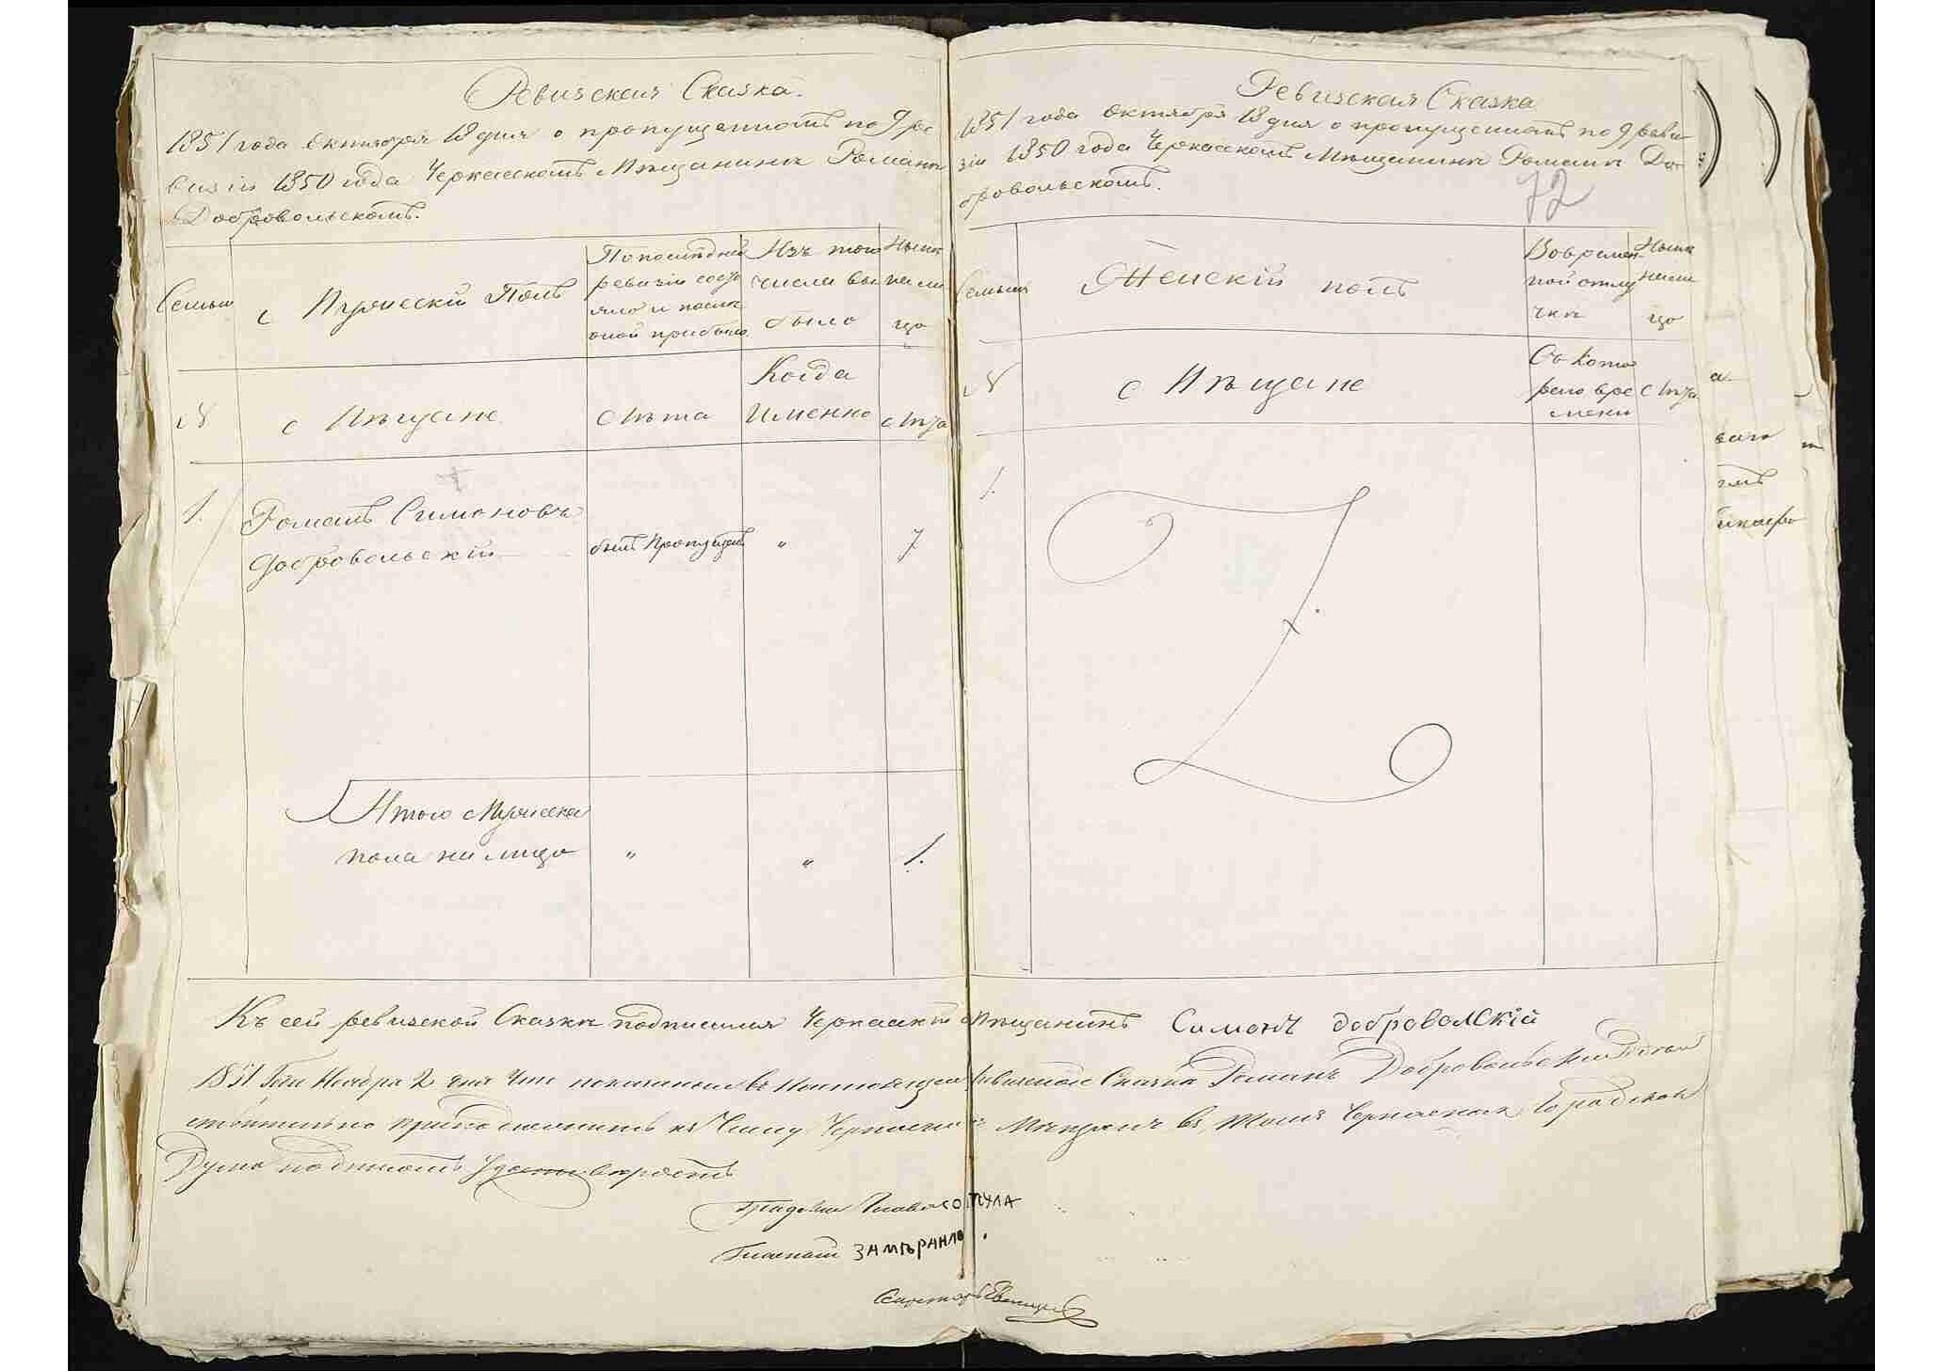 Ревизская Сказка.
1851 года Октября 18 дня о пропущенномъ по 9 ре
визіи 1850 года Черкасскомъ Мѣщанинѣ Романѣ
Добровольскомъ.
Семьи
Мужескій Полъ
По последней
ревизіи состо
яло и после
оной прибыло
Изъ того
числа вы
было
Ныне
на ли
цо
№
Мѣщане
Лѣта
Когда
Именно
Лѣта
1.
Романъ Симоновъ
Добровольскій
былъ пропущенъ
„
7
Итого Мужеска
пола на лицо
„
„
1.
Ревизская Сказка
1851 года Октября 18 дня о пропущенномъ по 9 реви
зіи 1850 года Черкасскомъ Мѣщанинѣ Романѣ До
бровольскомъ.
72
Семьи
Женскій полъ
Во времен
ной отлу
чке
Ныне
на ли
цо
№
Мѣщане
Съ кото
рого вре
мени
Лѣта
1.
Къ сей ревизской Сказке подписался Черкаскій Мѣщанинъ Симонъ добровольскій
1851 Года Ноября 2 дня Что показанный в настоящей ревизской Сказке Романъ Добровольскій Дѣй
ствительно принадлежитъ къ Числу Черкаских Мещанъ в Томъ Черкаская Городская
Дума подписомъ Удостоверяетъ
Градский Глава
Гласный
Секретарь